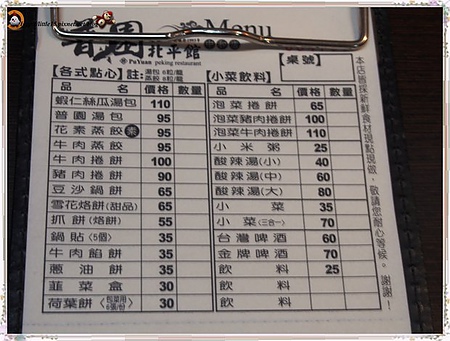 普園 北平館
Menu
PuYuan peking restaurant
【桌號】
【各式點心】註:湯包 8粒/籠
蒸餃 8粒/籠
品名 價格 數量
蝦仁絲瓜湯包 110
普園湯包 95
花素蒸餃 素 95
牛肉蒸餃 95
牛肉捲餅 100
豬肉捲餅 90
豆沙鍋餅 65
雪花烙餅(甜品) 65
抓餅(烙餅) 55
鍋貼(5個) 35
牛肉餡餅 35
蔥油餅 35
韮菜盒 30
荷葉餅 30
【小菜飲料】
品名 價格 數量
泡菜捲餅 65
泡菜豬肉捲餅 100
泡菜牛肉捲餅 110
小米粥 25
酸辣湯(小) 40
酸辣湯(中) 60
酸辣湯(大) 80
小菜 35
小菜(三合一) 70
台灣啤酒 60
金牌啤酒 70
飲料 25
飲料
本店皆採新鮮食材現點現做,敬請您耐心等候。謝謝!